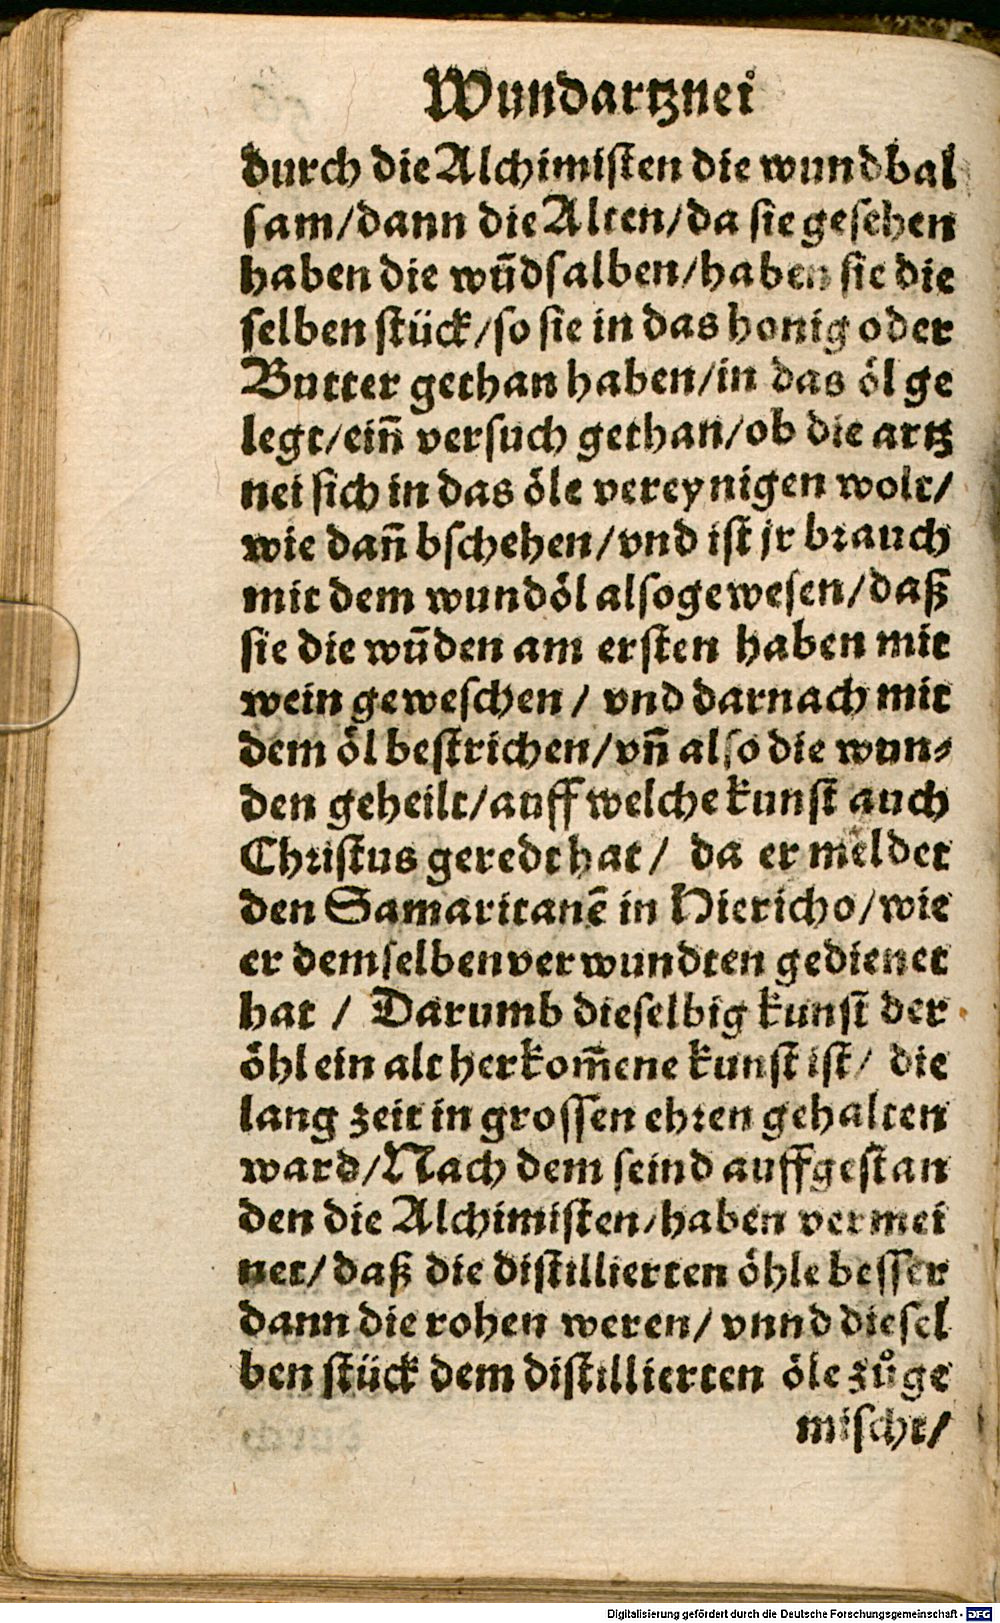 Wundartznei
durch die Alchimisten die wundbal
sam/dann die Alten/da sie gesehen
haben die wūdsalben/haben sie die
selben stück/so sie in das honig oder
Butter gethan haben/in das öl ge
legt/ein̄ versuch gethan/ob die artz
nei sich in das öle vereynigen wolt/
wie dan̄ bschehen/vnd ist jr brauch
mit dem wundöl also gewesen/daß
sie die wūden am ersten haben mit
wein geweschen/ vnd darnach mit
dem öl bestrichen/vn̄ also die wun⸗
den geheilt/auff welche kunst auch
Christus geredt hat/ da er meldet
den Samaritanē in Hiericho/wie
er demselben verwundten gedienet
hat / Darumb dieselbig kunst der
öhl ein alt herkom̄ene kunst ist/ die
lang zeit in grossen ehren gehalten
ward/Nach dem seind auffgestan
den die Alchimisten/haben vermei
net/daß die distillierten öhle besser
dann die rohen weren/ vnnd diesel
ben stück dem distillierten öle zůge
mischt/
Digitalisierung gefördert durch die Deutsche Forschungsgemeinschaft - DFG